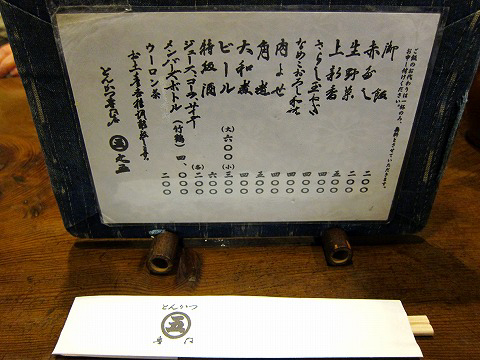 ご飯のお代わりは一杯のみ、
お申し付けください。無料とさせていただきます。
御飯 二〇〇
赤だし 二〇〇
生野菜 五〇〇
上新香 四〇〇
さらし玉ねぎ 四〇〇
なめこおろし和え 四〇〇
肉よせ 四〇〇
角煮 五〇〇
大和煮 四〇〇
ビール (大)六〇〇 (小)三〇〇
特級酒 六〇〇
ジュース、コーラ、サイダー (各)二〇〇
メンバーズボトル(竹鶴) 四、五〇〇
ウーロン茶 二〇〇
とんかつ
五
とんかつ
五